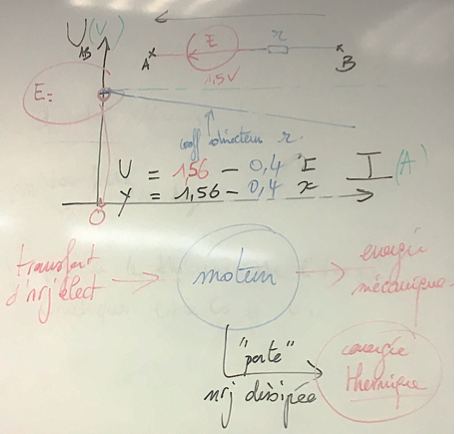 U AB (V)
E r
A B
1,5V
E =
coeff directeur r.
U = 1,56 - 0,4 I I (A)
y = 1,56 - 0,4 x
0
transfert moteur énergie
d'nrj élect mécanique
"perte" énergie
nrj dissipée thermique